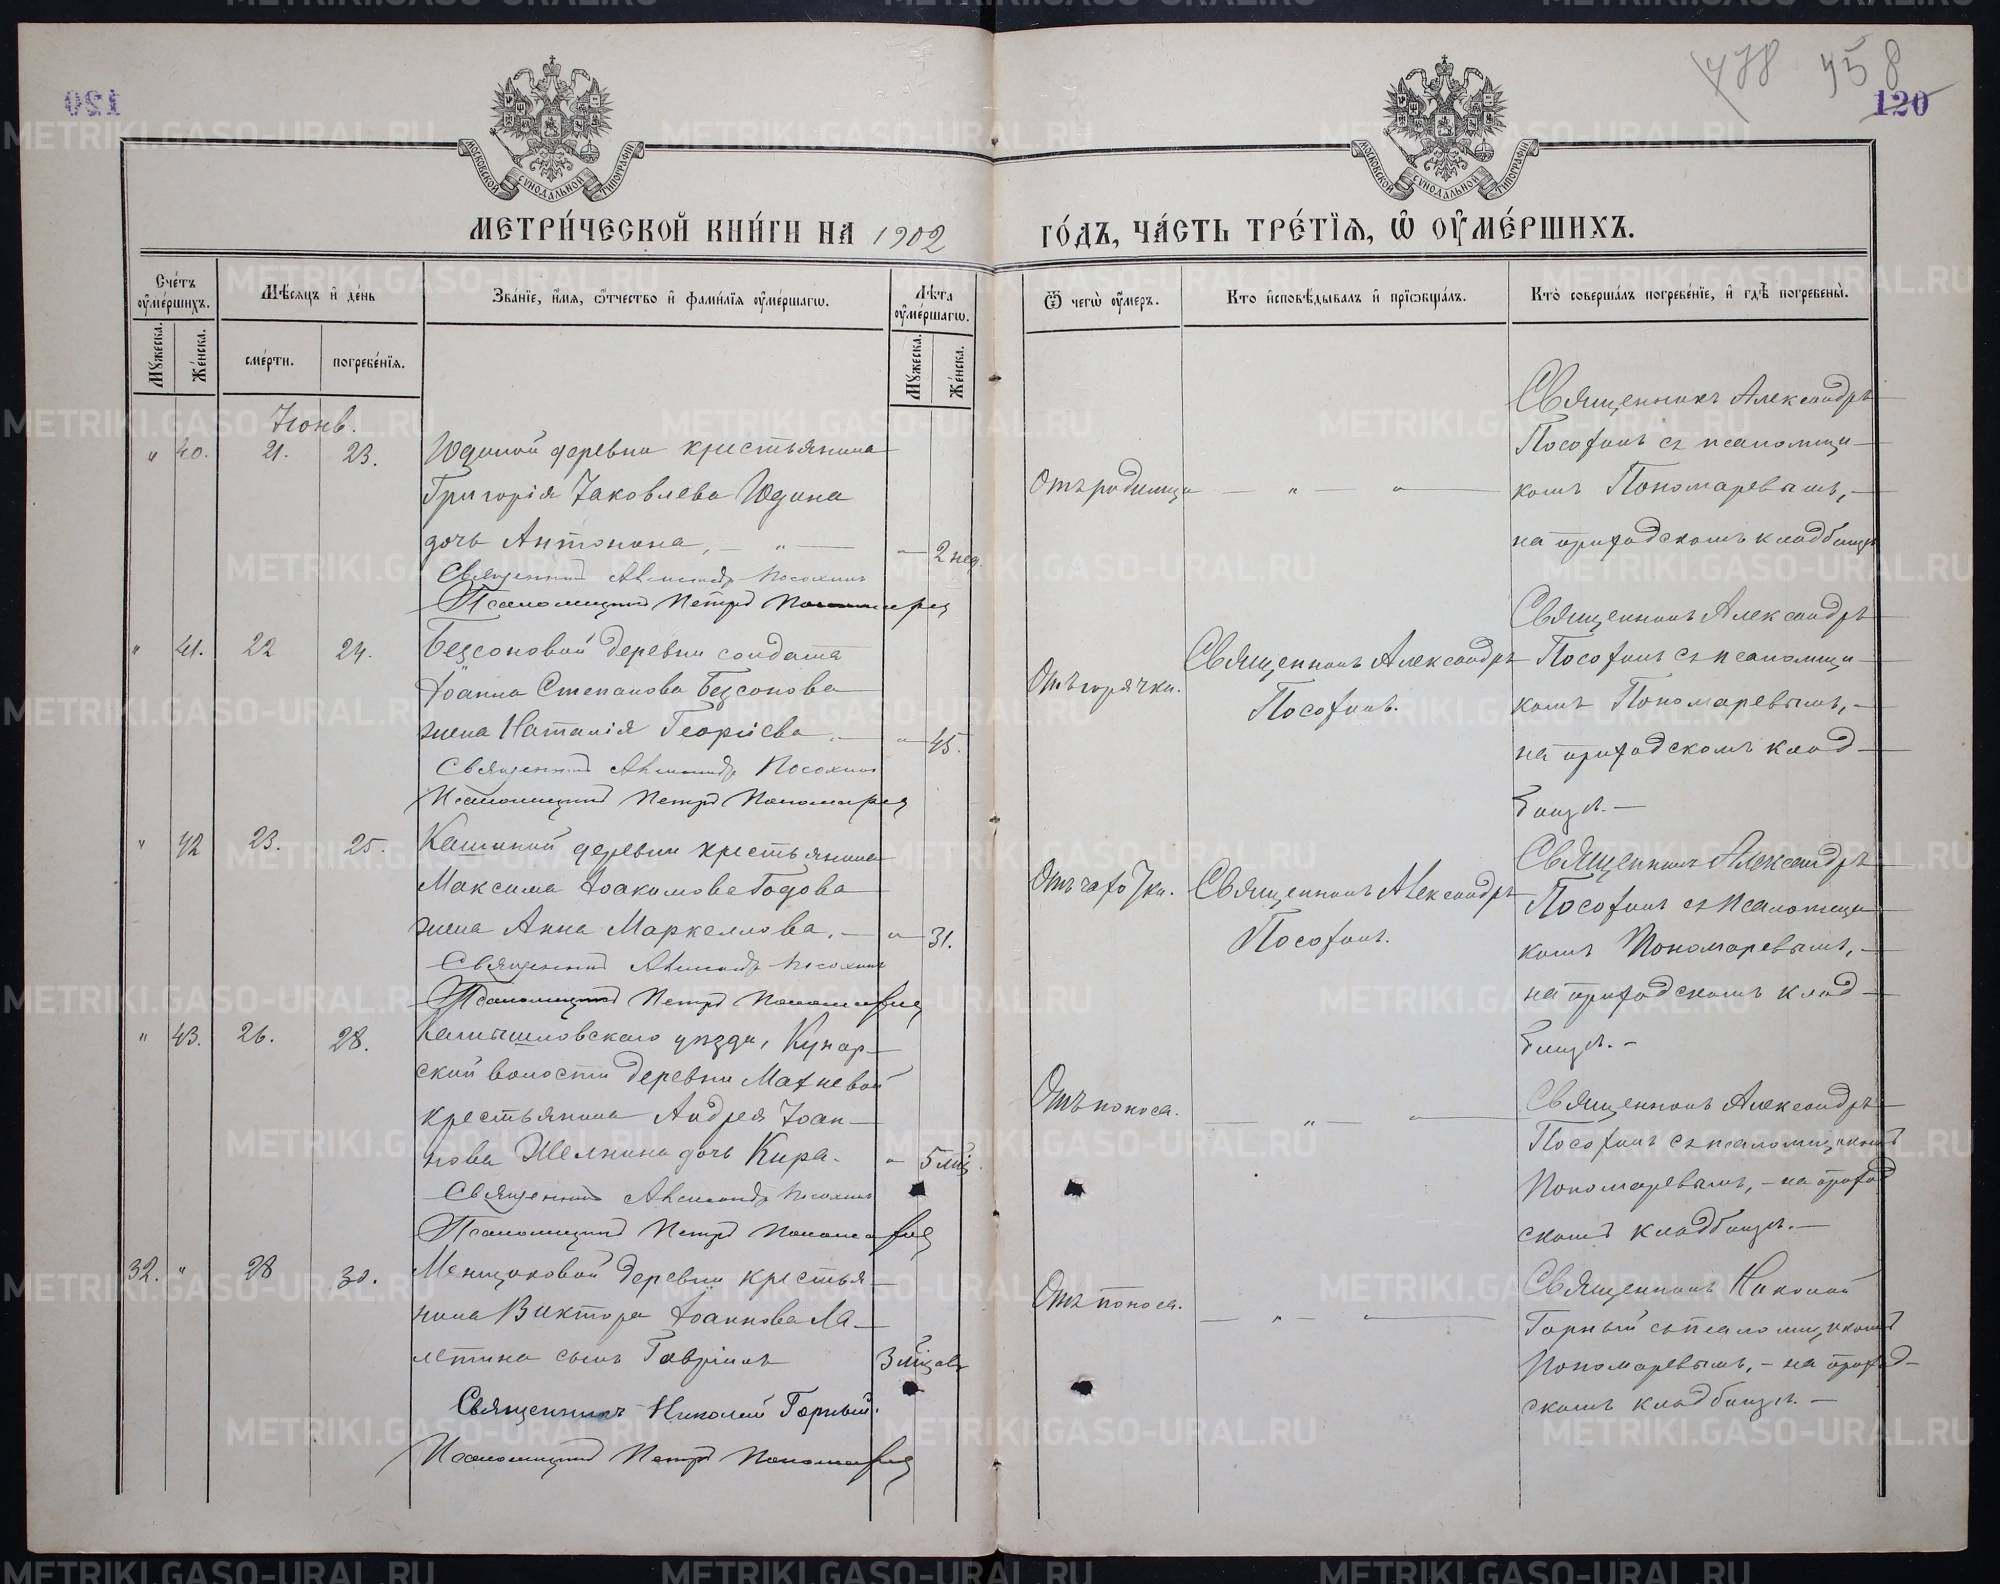 120
458
120
МОСКОВСКОЙ СУНОДАЛЬНОЙ ТИПОГРАФІИ
МОСКОВСКОЙ СУНОДАЛЬНОЙ ТИПОГРАФІИ
МЕТРИ́ЧЕСКОЙ КНИ́ГИ НА 1902
ГО́ДЪ, ЧА́СТЬ ТРЕ́ТЇѦ, Ѡ҆ ОУ҆МЕ́РШИХЪ.
Сче́тъ оу҆ме́ршихъ.
Мѣсѧцъ и҆ де́нь
Зва́нїе, и҆́мѧ, ѻ҆́тчество и҆ фами́лїѧ оу҆ме́ршагѡ.
Лѣ́та оу҆ме́ршагѡ.
Ѿ чегѡ̀ оу҆́меръ.
Кто̀ и҆сповѣ́дывалъ и҆ прїѡбща́лъ.
Кто̀ соверша́лъ погребе́нїе, и҆ гдѣ̀ погребены̀.
Мꙋ́жеска.
Же́нска.
сме́рти.
погребе́нїѧ.
Мꙋ́жеска.
Же́нска.
Іюнь.
" 40. 21. 23. Юдиной деревни крестьянина
Григорія Іаковлева Юдина
дочь Антонина, — " —
" 2 нед.
Священникъ Александръ Посохинъ
Псаломщикъ Петръ Пономарев
Отъ родимца — " — " —
Священникъ Александръ
Посохинъ съ псаломщи-
комъ Пономаревымъ, —
на приходскомъ кладбищѣ
" 41. 22 24. Безсоновой деревни солдата
Іоанна Степанова Безсонова
жена Наталія Георгіева. —
" 45.
Священникъ Александръ Посохинъ
Псаломщикъ Петръ Пономарев
Отъ горячки.
Священникъ Александръ
Посохинъ.
Священникъ Александръ
Посохинъ съ псаломщи-
комъ Пономаревымъ, —
на приходскомъ клад-
бищѣ. —
" 42 23. 25. Кашиной деревни крестьянина
Максима Іоакимова Годова
жена Анна Маркеллова. —
" 31.
Священникъ Александръ Посохинъ
Псаломщикъ Петръ Пономарев
Отъ чахотки.
Священникъ Александръ
Посохинъ.
Священникъ Александръ
Посохинъ съ псаломщи
комъ Пономаревымъ, —
на приходскомъ клад-
бищѣ. —
" 43. 26. 28. Камышловскаго уѣзда, Кунар-
ской волости деревни Махневой
крестьянина Андрея Іоан-
нова Шелкина дочь Кира.
" 5 мц.
Священникъ Александръ Посохинъ
Псаломщикъ Петръ Пономарев
Отъ поноса.
— " — " —
Священникъ Александръ
Посохинъ съ псаломщикомъ
Пономаревымъ, — на приход
скомъ кладбищѣ. —
32. " 28 30. Менщиковой деревни крестья-
нина Виктора Іоаннова Ла-
летина сынъ Гавріилъ
3 мцовъ
Священникъ Николай Горный.
Псаломщикъ Петръ Пономарев
Отъ поноса.
— " — " —
Священникъ Николай
Горный съ псаломщикомъ
Пономаревымъ, — на приход-
скомъ кладбищѣ. —
METRIKI.GASO-URAL.RU